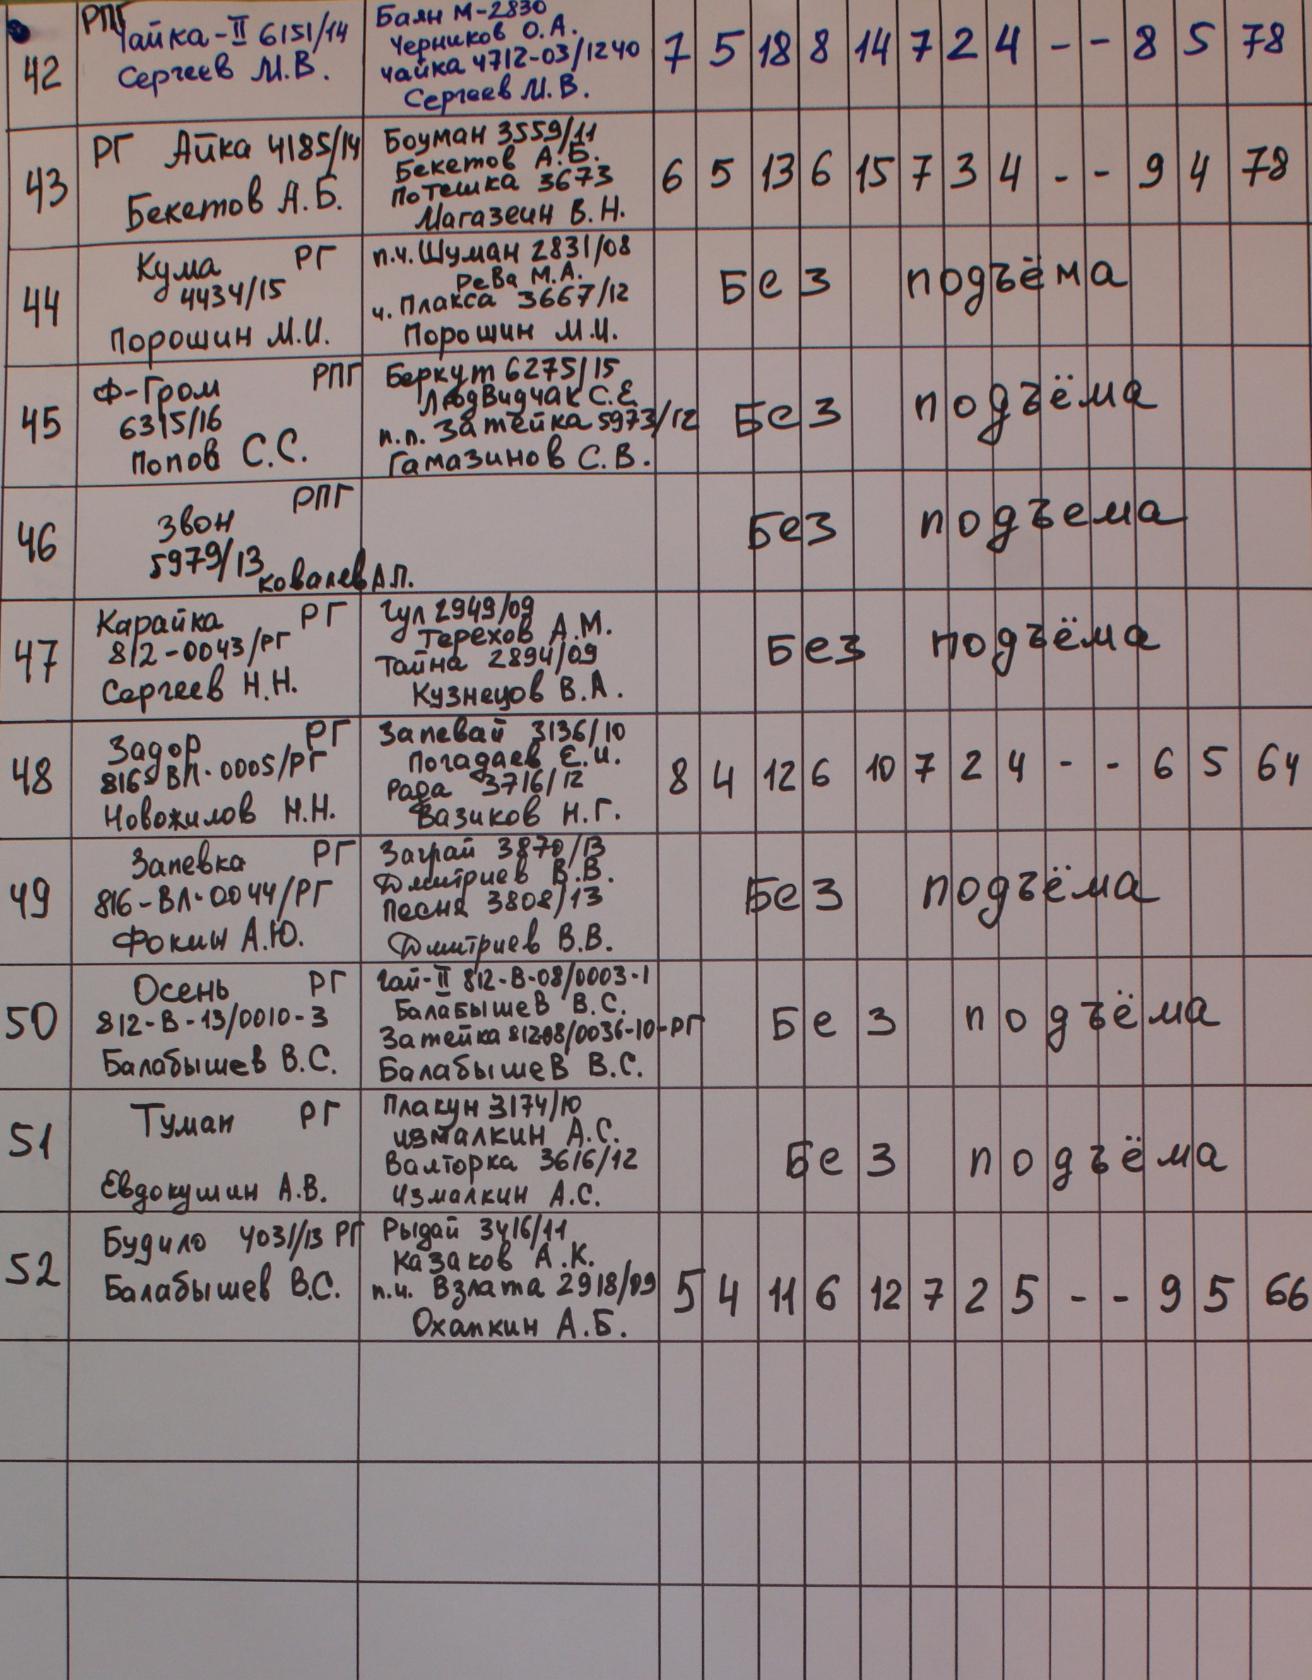 42
РПГ
Чайка-II 6151/14
Сергеев М.В.
Баян М-2830
Черников О.А.
Чайка 4712-03/1240
Сергеев М.В.
7 5 18 8 14 7 2 4 - - 8 5 78
43
РГ Айка 4185/14
Бекетов А.Б.
Боуман 3559/11
Бекетов А.Б.
Потешка 3673
Магазеин В.Н.
6 5 13 6 15 7 3 4 - - 9 4 78
44
Кума РГ
4434/15
Порошин М.И.
п.ч. Шуман 2831/08
Рева М.А.
ч. Плакса 3667/12
Порошин М.И.
Без подъёма
45
Ф-Гром РПГ
6315/16
Попов С.С.
Беркут 6275/15
Людвидчак С.Е
п.п. Затейка 5973/12
Гамазинов С.В.
Без подъёма
46
РПГ
Звон
5979/13
Ковалев А.П.
Без подъема
47
Карайка РГ
812-0043/РГ
Сергеев Н.Н.
Гул 2949/09
Терехов А.М.
Тайна 2894/09
Кузнецов В.А.
Без подъёма
48
Задор РГ
816-ВЛ-0005/РГ
Новожилов Н.Н.
Запевай 3136/10
Погадаев Е.И.
Рада 3716/12
Вазиков Н.Г.
8 4 12 6 10 7 2 4 - - 6 5 64
49
Запевка РГ
816-ВЛ-0044/РГ
Фокин А.Ю.
Заграй 3870/13
Дмитриев В.В.
Песня 3808/13
Дмитриев В.В.
Без подъёма
50
Осень РГ
812-В-13/0010-3
Балабышев В.С.
Гай-II 812-В-08/0003-1
Балабышев В.С.
Затейка 812-08/0036-10-РГ
Балабышев В.С.
Без подъёма
51
Туман РГ
Евдокушин А.В.
Плакун 3174/10
Измалкин А.С.
Валторка 3616/12
Измалкин А.С.
Без подъёма
52
Будило 4031/13 РГ
Балабышев В.С.
Рыдай 3416/11
Казаков А.К.
п.ч. Взлата 2918/09
Охапкин А.Б.
5 4 11 6 12 7 2 5 - - 9 5 66